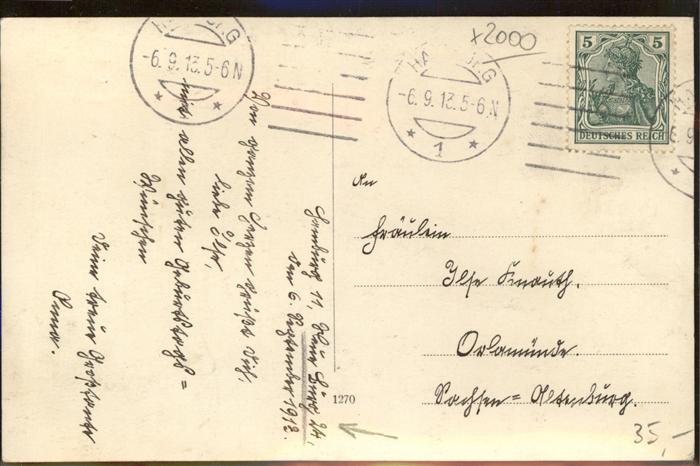 x2000
HAMBURG
-6.9.13.5-6N
HAMBURG
-6.9.13.5-6N
1
5 5
DEUTSCHES REICH
Hamburg 11, Neue Burg 24,
den 6. September 1913.
Von ganzem Herzen grüßt Dich,
liebe Ilse,
mit allen guten Geburtstags=
Wünschen
Deine treue Großtante
Anna.
An
Fräulein
Ilse Knauth.
Orlamünde.
Sachsen=Altenburg.
1270
35,-